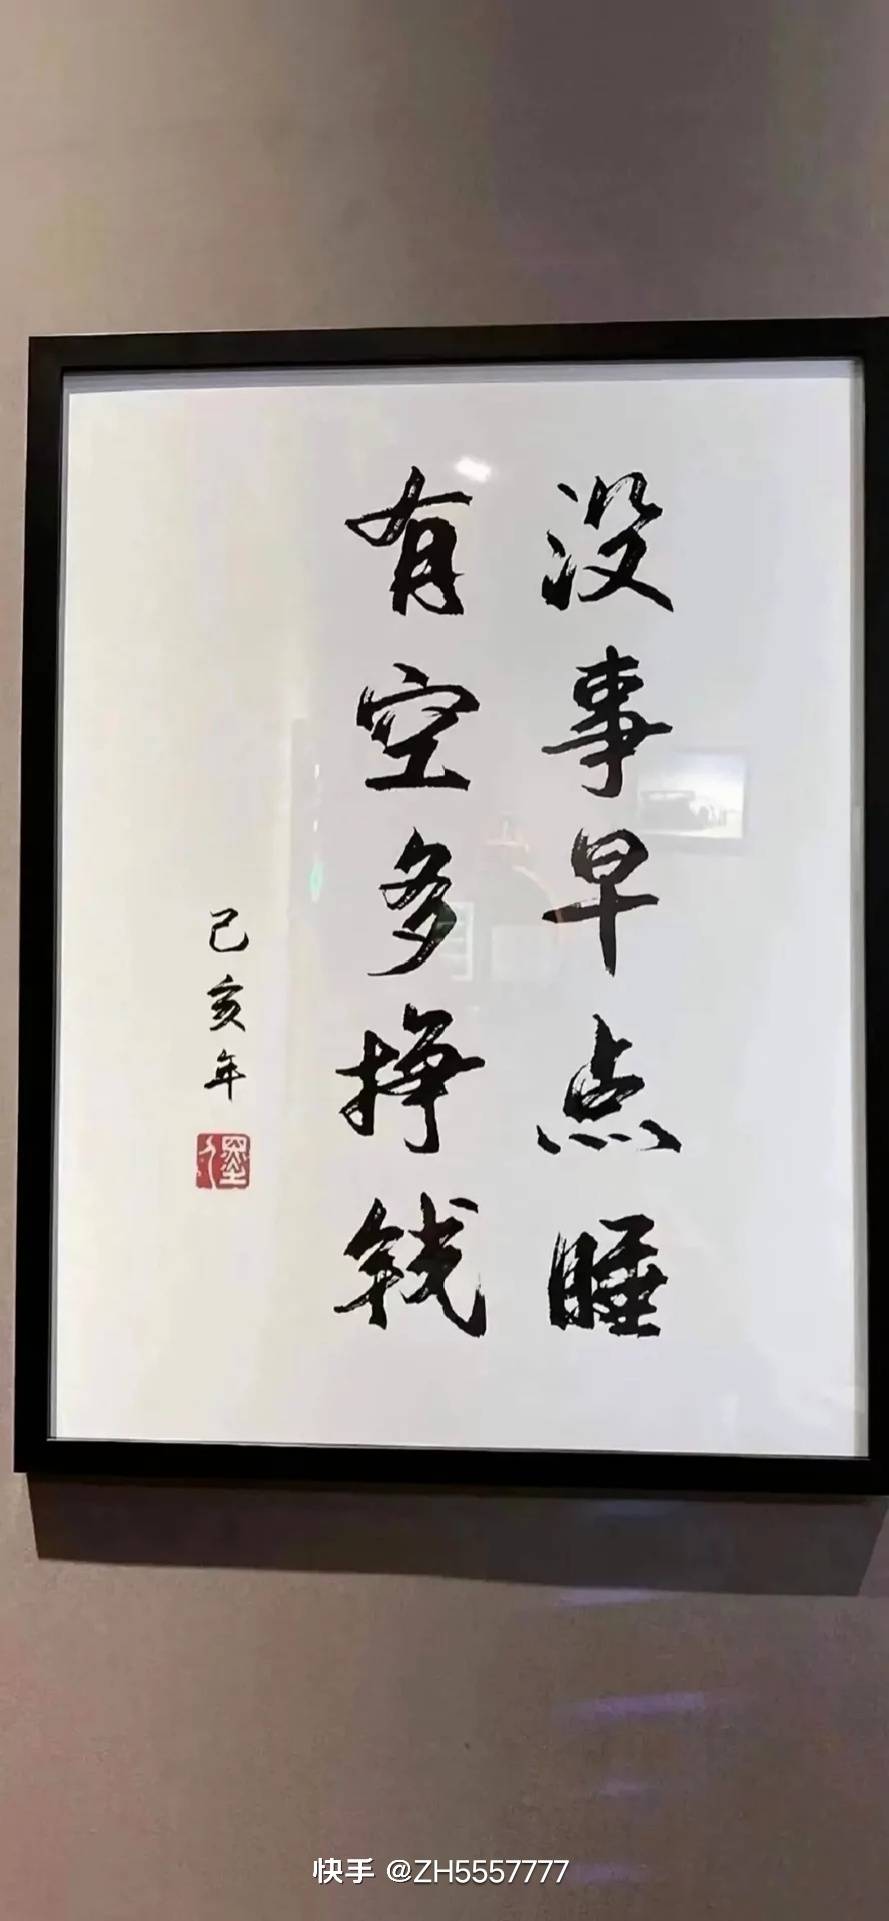 没事早点睡
有空多挣钱
己亥年
快手 @ZH5557777